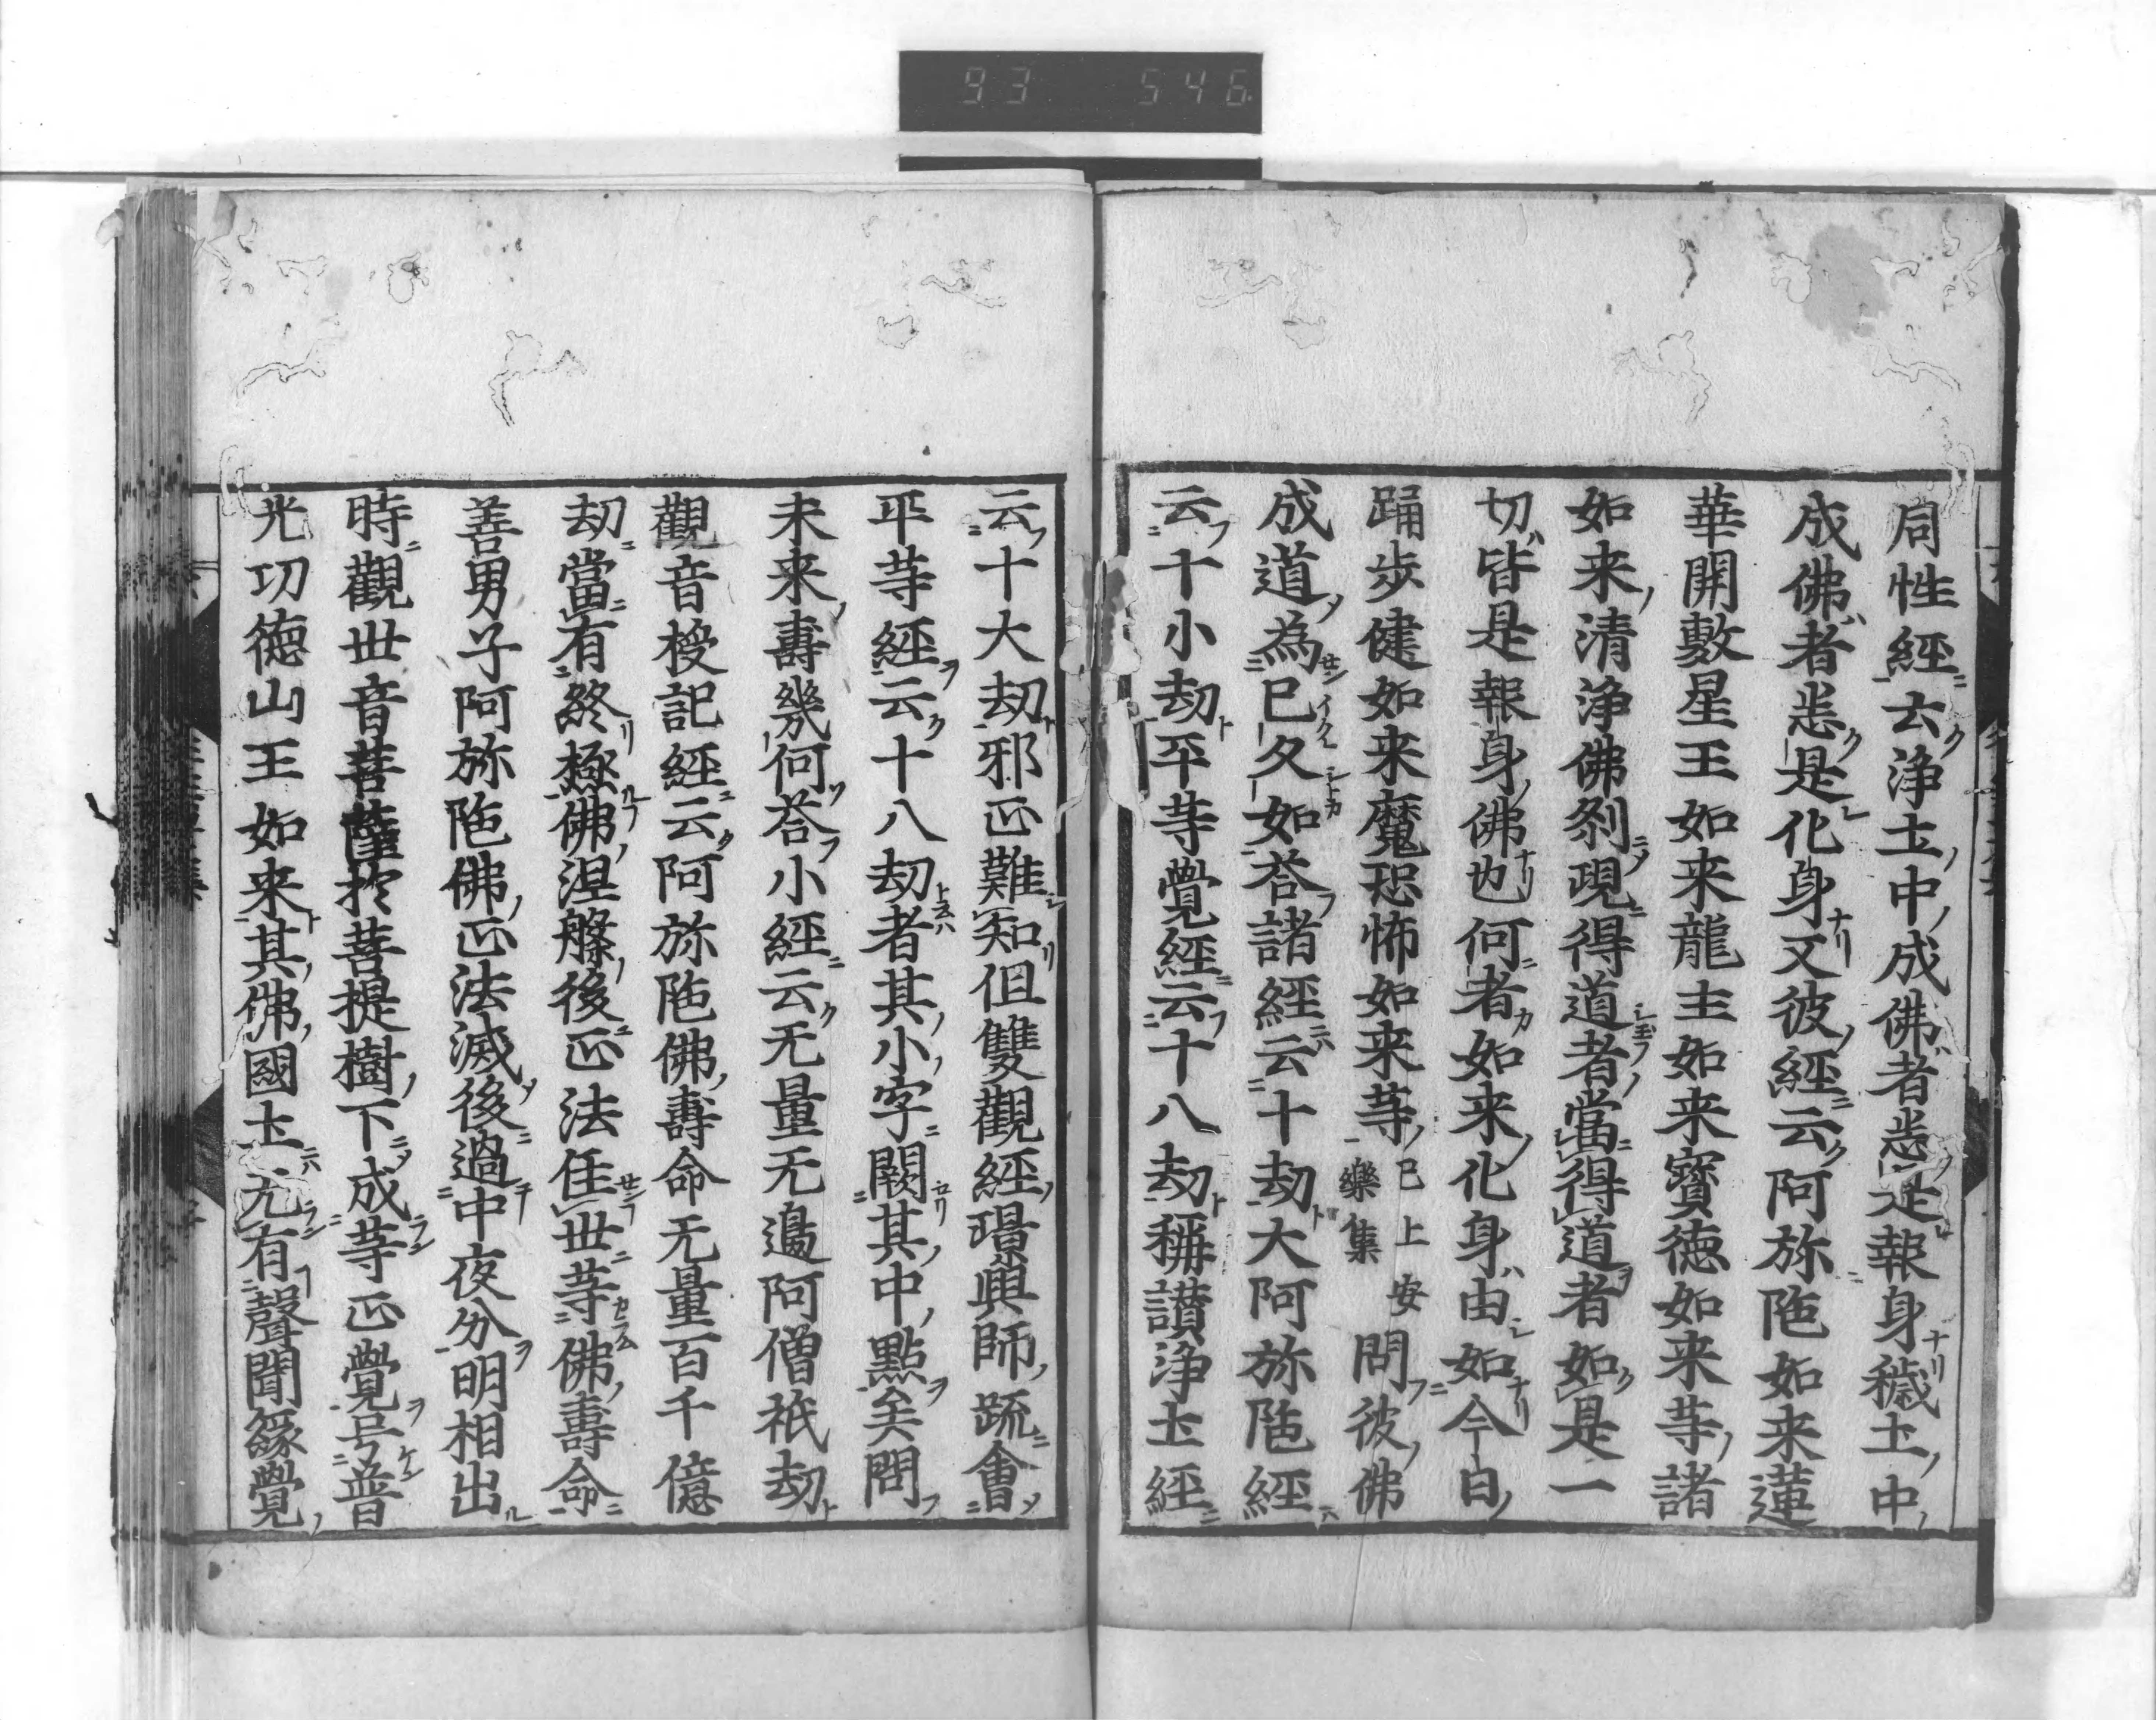 93 546
同性經云浄土中成佛者悉是報身穢土中
成佛者悉是化身又彼經云阿弥陁如来蓮
華開敷星王如来龍主如来寳徳如来䓁諸
如来清浄佛刹現得道者當得道者如是一
切皆是報身佛也何者如来化身由如今日
踊歩健如来魔恐怖如来䓁 已上安樂集 問彼佛
成道為已久如荅諸經云十劫大阿弥陁經
云十小劫平䓁覺經云十八劫稱讃浄土經
云十大劫邪正難知但雙觀經璟興師疏會
平䓁經云十八劫者其小字闕其中點矣問
未来壽幾何荅小經云无量无邊阿僧祇劫
觀音授記經云阿弥陁佛壽命无量百千億
劫當有終極佛涅槃後正法住世䓁佛壽命
善男子阿弥陁佛正法滅後過中夜分明相出
時觀世音菩薩於菩提樹下成䓁正覺号普
光功徳山王如来其佛國土尤有聲聞縁覺